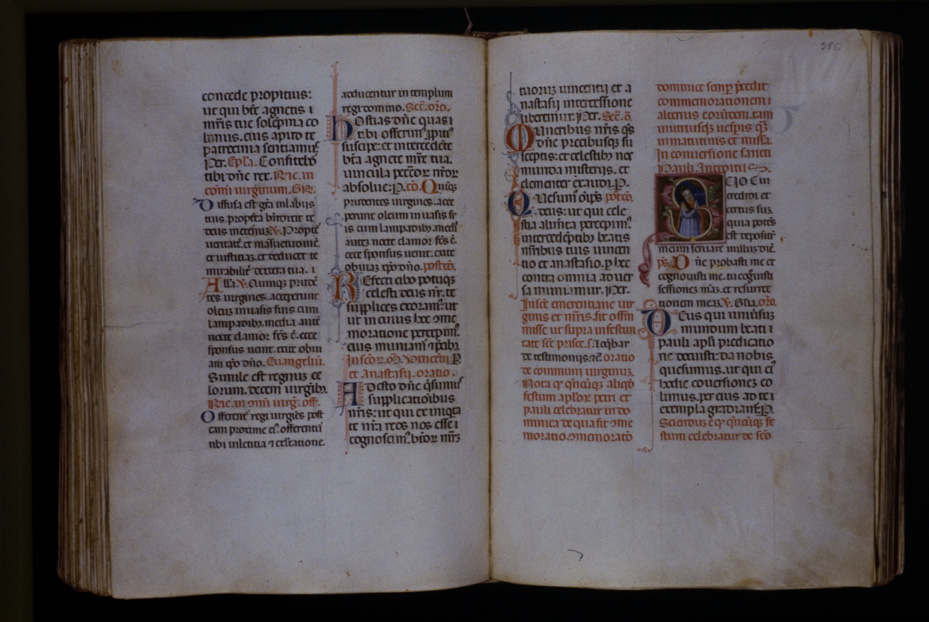 concede propitius:
ut qui bte agnetis i
mris tue solepnia co
limus. eius aput te
patrocinia sentiamus
Per. Epla. Confitebor
tibi dne rex. Rx. in
coni virginum. GR.
Diffusa est gra in labiis
tuis. propterea bndixit te
deus in eternu. V. Propter
ueritate et mansuetudine
et iustitia. et deducet te
mirabiliter dextera tua. i
Alla. V. Quinque prudentes
tes virgines. acceperunt
oleu in uasis suis cum
lampadib. media aute
nocte clamor fcs e. ecce
sponsus uenit. exite obui
am xpo dno. Evangelium.
Simile est regnum ce
lorum. decem virgib.
Rx. in coni virg. off.
Offerent regi virgies post
eam proxime ei. offerentur
tibi in letitia et exultatione.
adducentur in templum
regi domino. Sec. oro.
Hostias dne quas
tibi offerim. ppitius
suscipe: et intercedente
bta agnete mre tua.
uincula pccor nror
absolue. P. co. Quinq
prudentes virgines. acce
perunt oleum in uasis su
is cum lampadib. media
aute nocte clamor fcs e.
ecce sponsus uenit. exite
obuiaz xpo dno. postco.
Refecti cibo potuq
celesti deus nr. te
supplices exoram. ut
ut in cuius hec come
moratione percepim.
eius muniam. et pcib.
In scor. m. Vincentii
et Anastasii. oratio.
Adesto dne qsumus
supplicatioibus
nris: ut qui ex iniqta
te nra reos nos esse
cognoscim. btor mrm
tuorum uincentii et a
nastasii intercessione
liberemur. Per. Sec. o.
Muneribus nris qs
dne precibusq su
sceptis: et celestib. nos
munda misteriis. et
clementer exaudi. P.
Quesumus omps postco.
deus: ut qui cele
stia alimenta percepim.
intercedetib. beatis
mribus tuis uincen
tio et anastasio. p hec
contra omnia aduer
sa muniamur. Per.
In sce emerentiane uir
ginis et mris. fit offm
misse ut supra in festiui
tate sce prisce. s. Loqbar
de testimoniis. cu oratio
de communi virginum.
Nota q qncuq aliqd
festum aplor. petri et
pauli celebratur in eo
munica de qncuq come
moratio comemorato
dominice semp predicit
commemorationem i
alterius eorudem. tam
in utriusq uespis. qz
in matutinis et missa.
In conversione sancti
Pauli. Introitus
Scio cui
credidi et
certus su. q
quia potes
est depositu
meum seruare in illum die.
ps. Dne probasti me et
cognouisti me. tu cognouisti
sessiones mea. et resurrec
tionem mea. V. Gla. oro.
Deus qui uniuersum
mundum beati
pauli apli predicatio
ne docuisti: da nobis
quesumus. ut qui ei
hodie couersionez co
limus. per eius ad te
exempla gradiamur. P.
Sciendum e q qncuq fe
stum celebratur de sco